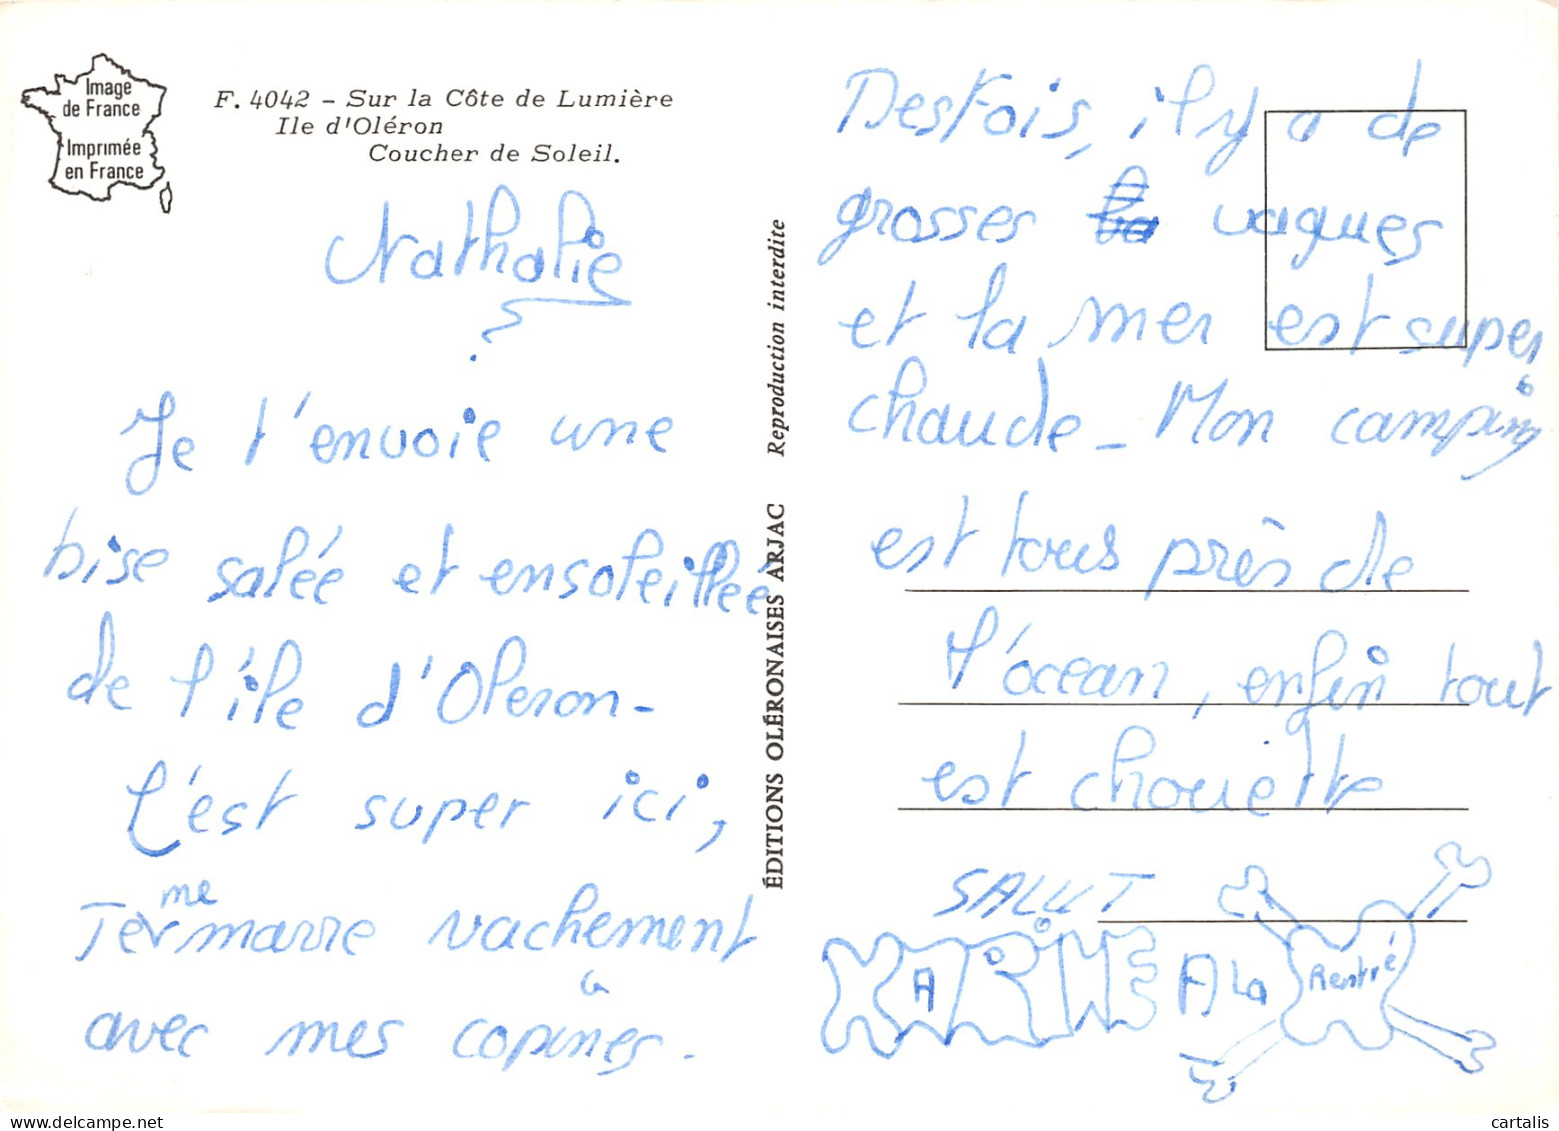 Image
de France
Imprimée
en France
F. 4042 - Sur la Côte de Lumière
Ile d'Oléron
Coucher de Soleil.
Nathalie
Je t'envoie une
bise salée et ensoleillée
de l'île d'Oleron-
C'est super ici,
me
marre vachement
avec mes copines.
ÉDITIONS OLÉRONAISES ARJAC Reproduction interdite
Desfois, il y a de
grosses vagues
et la mer est super
chaude - Mon camping
est tous près de
l'océan, enfin tout
est chouette
SALUT
KARINE A La Rentré
cartalis